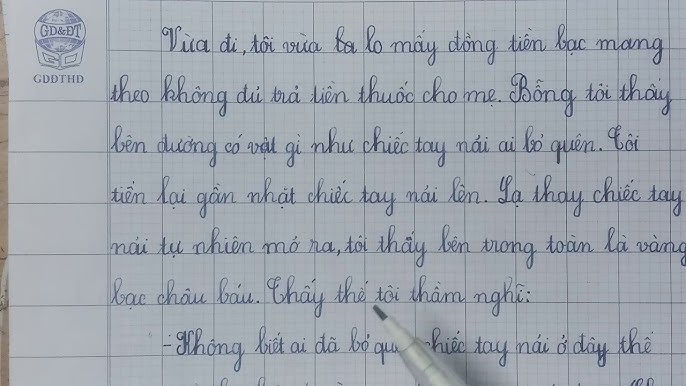 GD&ĐT
GDDTHD
Vừa đi, tôi vừa lo mấy đồng tiền bạc mang
theo không đủ trả tiền thuốc cho mẹ. Bỗng tôi thấy
bên đường có vật gì như chiếc tay nải ai bỏ quên. Tôi
tiến lại gần nhặt chiếc tay nải lên. Lạ thay chiếc tay
nải tự nhiên mở ra, tôi thấy bên trong toàn là vàng
bạc châu báu. Thấy thế tôi thầm nghĩ:
- Không biết ai đã bỏ chiếc tay nải ở đây thế